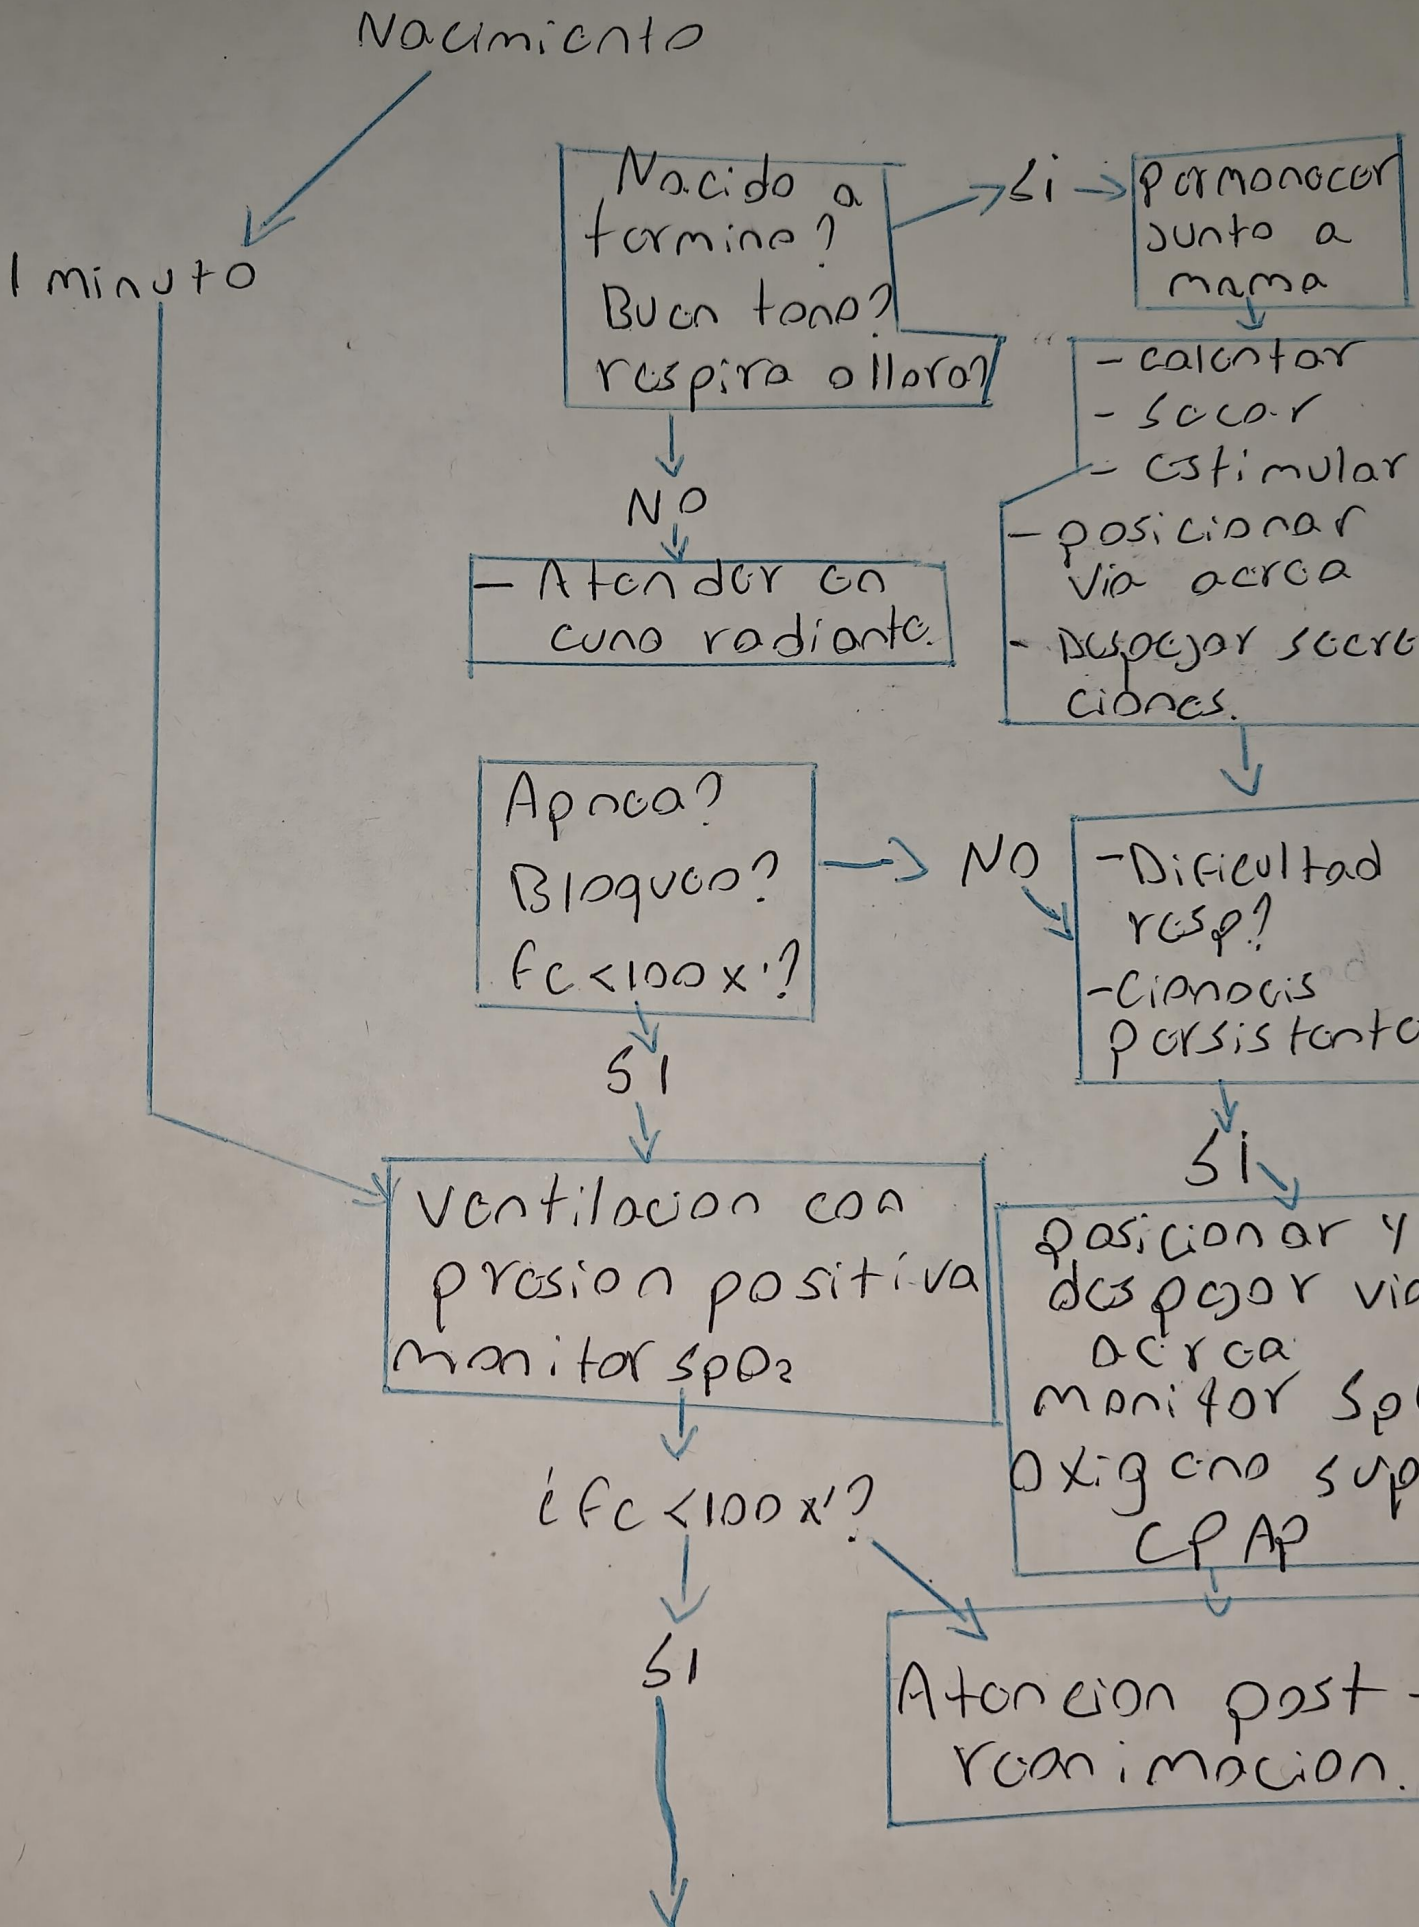 Nacimiento
1 minuto
Nacido a
termino?
Buen tono?
respira o llora?
Si
permanecer
junto a
mama
- calentar
- secar
- estimular
- posicionar
via aerea
- Despejar secre
ciones.
NO
- Atender en
cuna radiante.
Apnea?
Bloqueo?
fc <100 x'?
NO
- Dificultad
resp?
- Cianocis
persistente
SI
SI
ventilacion con
presion positiva
monitor spO₂
posicionar y
despejar via
aerea
monitor Sp
oxigeno sup
CPAP
¿fc <100 x'?
SI
Atencion post -
reanimacion.